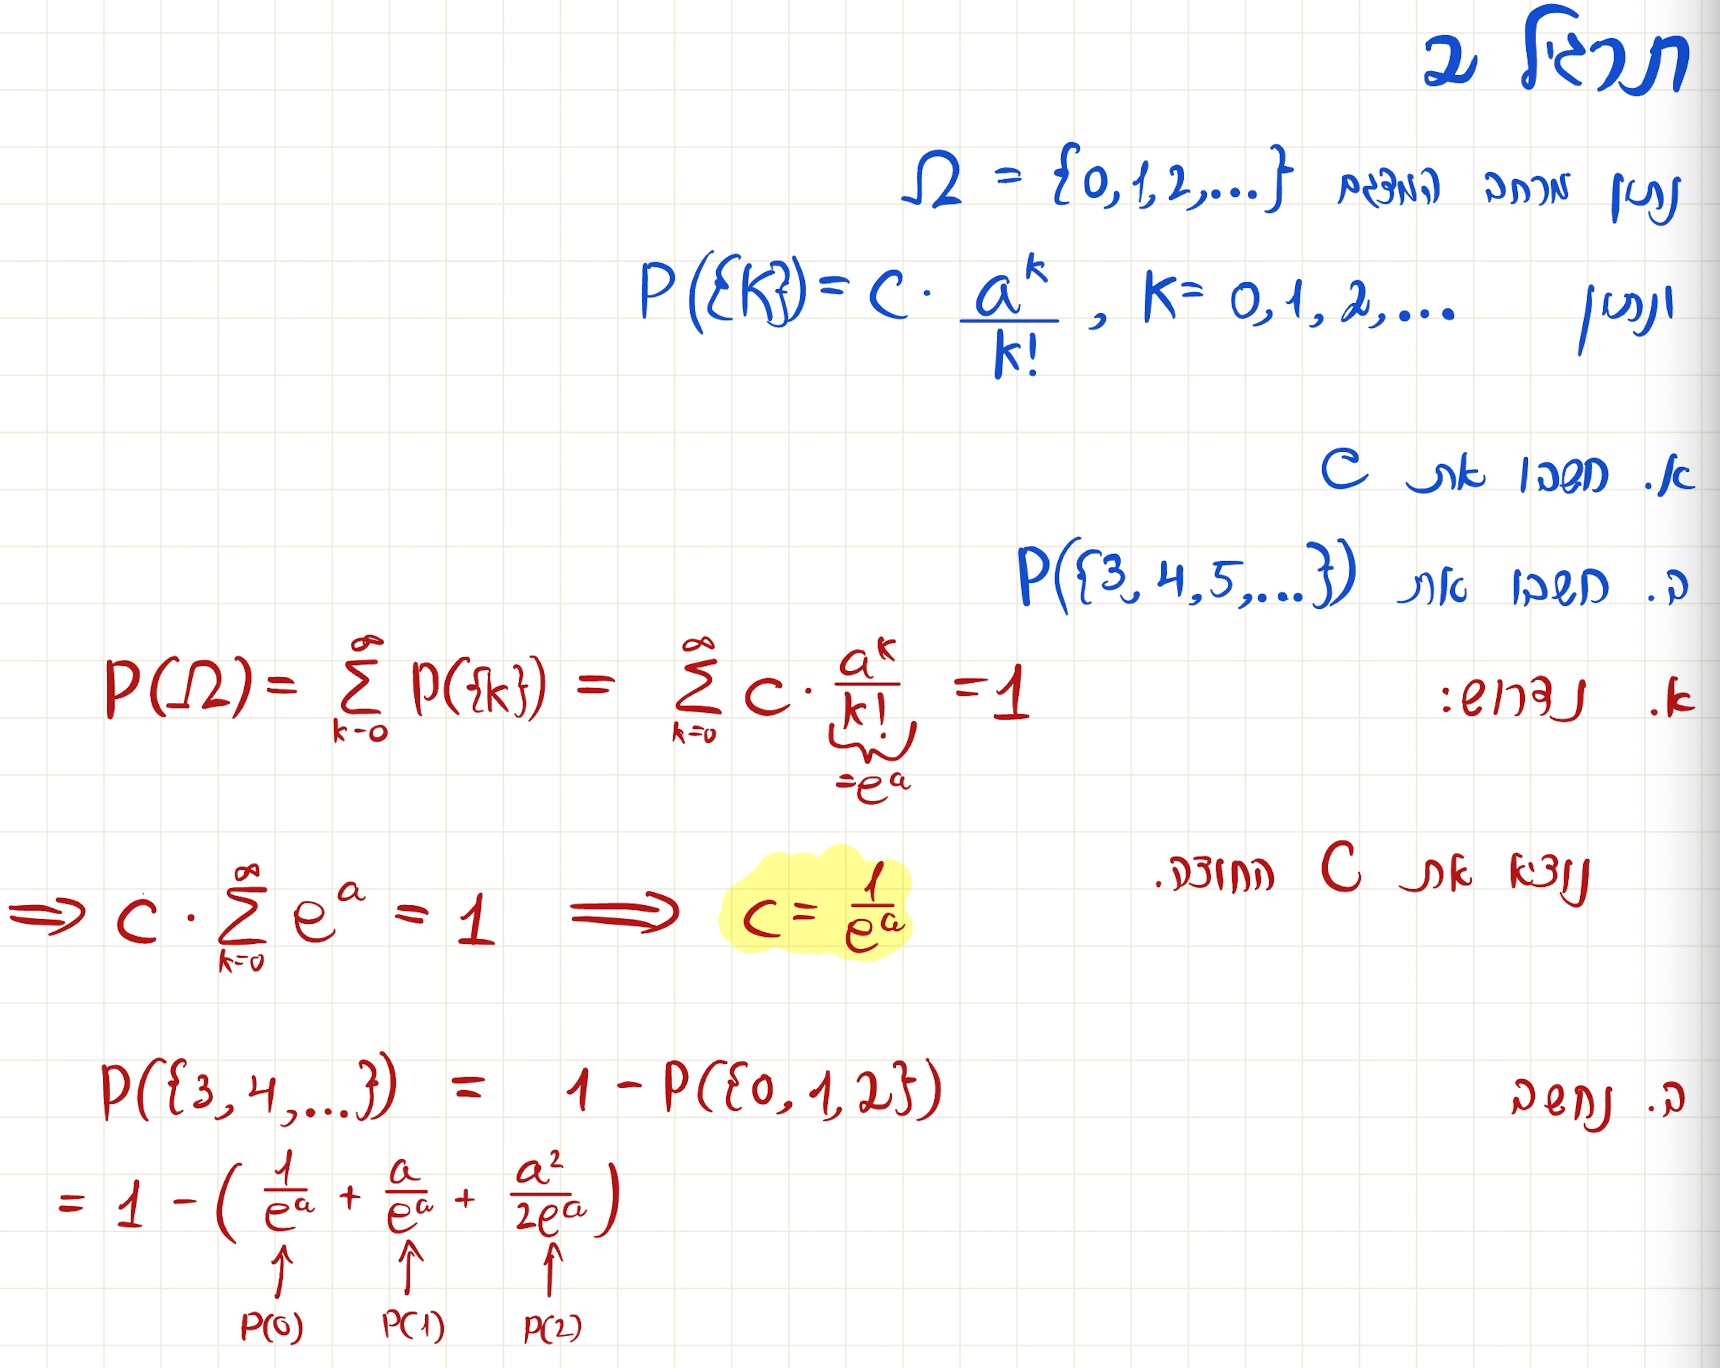 תרגיל 2
נתון מרחב המדגם Ω = {0,1,2,...}
ונתון P({k}) = C · a^k / k! , k = 0,1,2,...
א. חשבו את C
ב. חשבו את P({3,4,5,...})
א. נדרוש: P(Ω) = ∑_{k=0}^{∞} P({k}) = ∑_{k=0}^{∞} C · a^k / k! = 1
= e^a
נוציא את C החוצה.
⟹ C · ∑_{k=0}^{∞} e^a = 1 ⟹ C = 1 / e^a
ב. נחשב P({3,4,...}) = 1 - P({0,1,2})
= 1 - ( 1/e^a + a/e^a + a^2/2e^a )
↑ ↑ ↑
P(0) P(1) P(2)